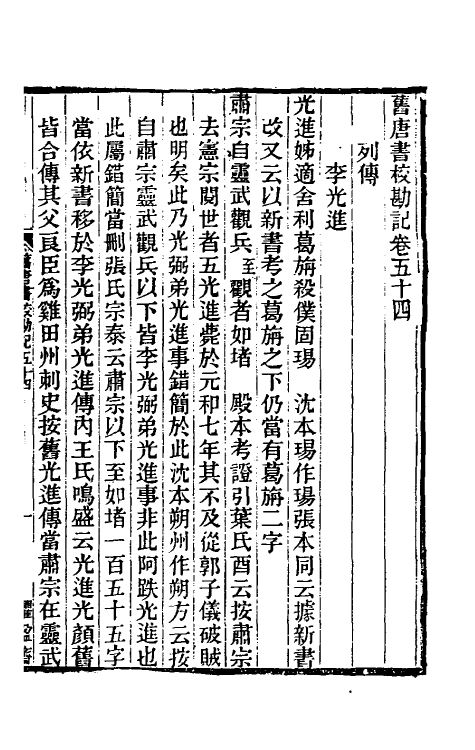 舊唐書校勘記卷五十四
列傳
李光進
光進姊適舍利葛旃殺僕固瑒　沈本瑒作瑒張本同云據新書
改又云以新書考之葛旃之下仍當有葛旃二字
肅宗自靈武觀兵至觀者如堵　殿本考證引葉氏酉云按肅宗
去憲宗閱世者五光進薨於元和七年其不及從郭子儀破賊
也明矣此乃光弼弟光進事錯簡於此沈本朔州作朔方云按
自肅宗靈武觀兵以下皆李光弼弟光進事非此阿跌光進也
此屬錯簡當刪張氏宗泰云肅宗以下至如堵一百五十五字
當依新書移於李光弼弟光進傳內王氏鳴盛云光進光顏舊
皆合傳其父良臣爲雞田州刺史按舊光進傳當肅宗在靈武
舊唐書校勘記五十四
一